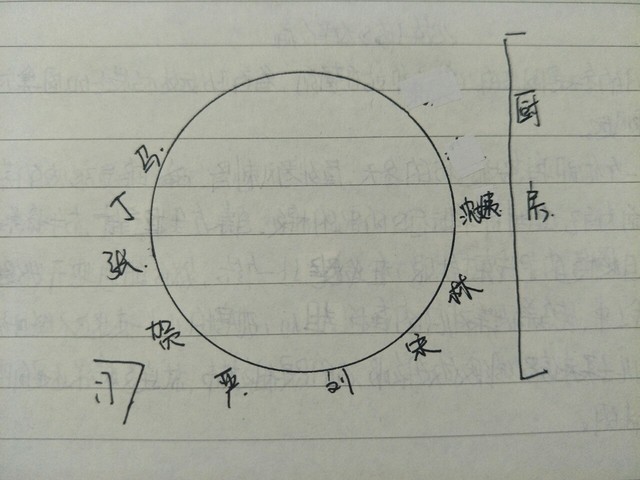 厨
房
马
丁
张
贺
门
严
刘
宋
林
沈姨